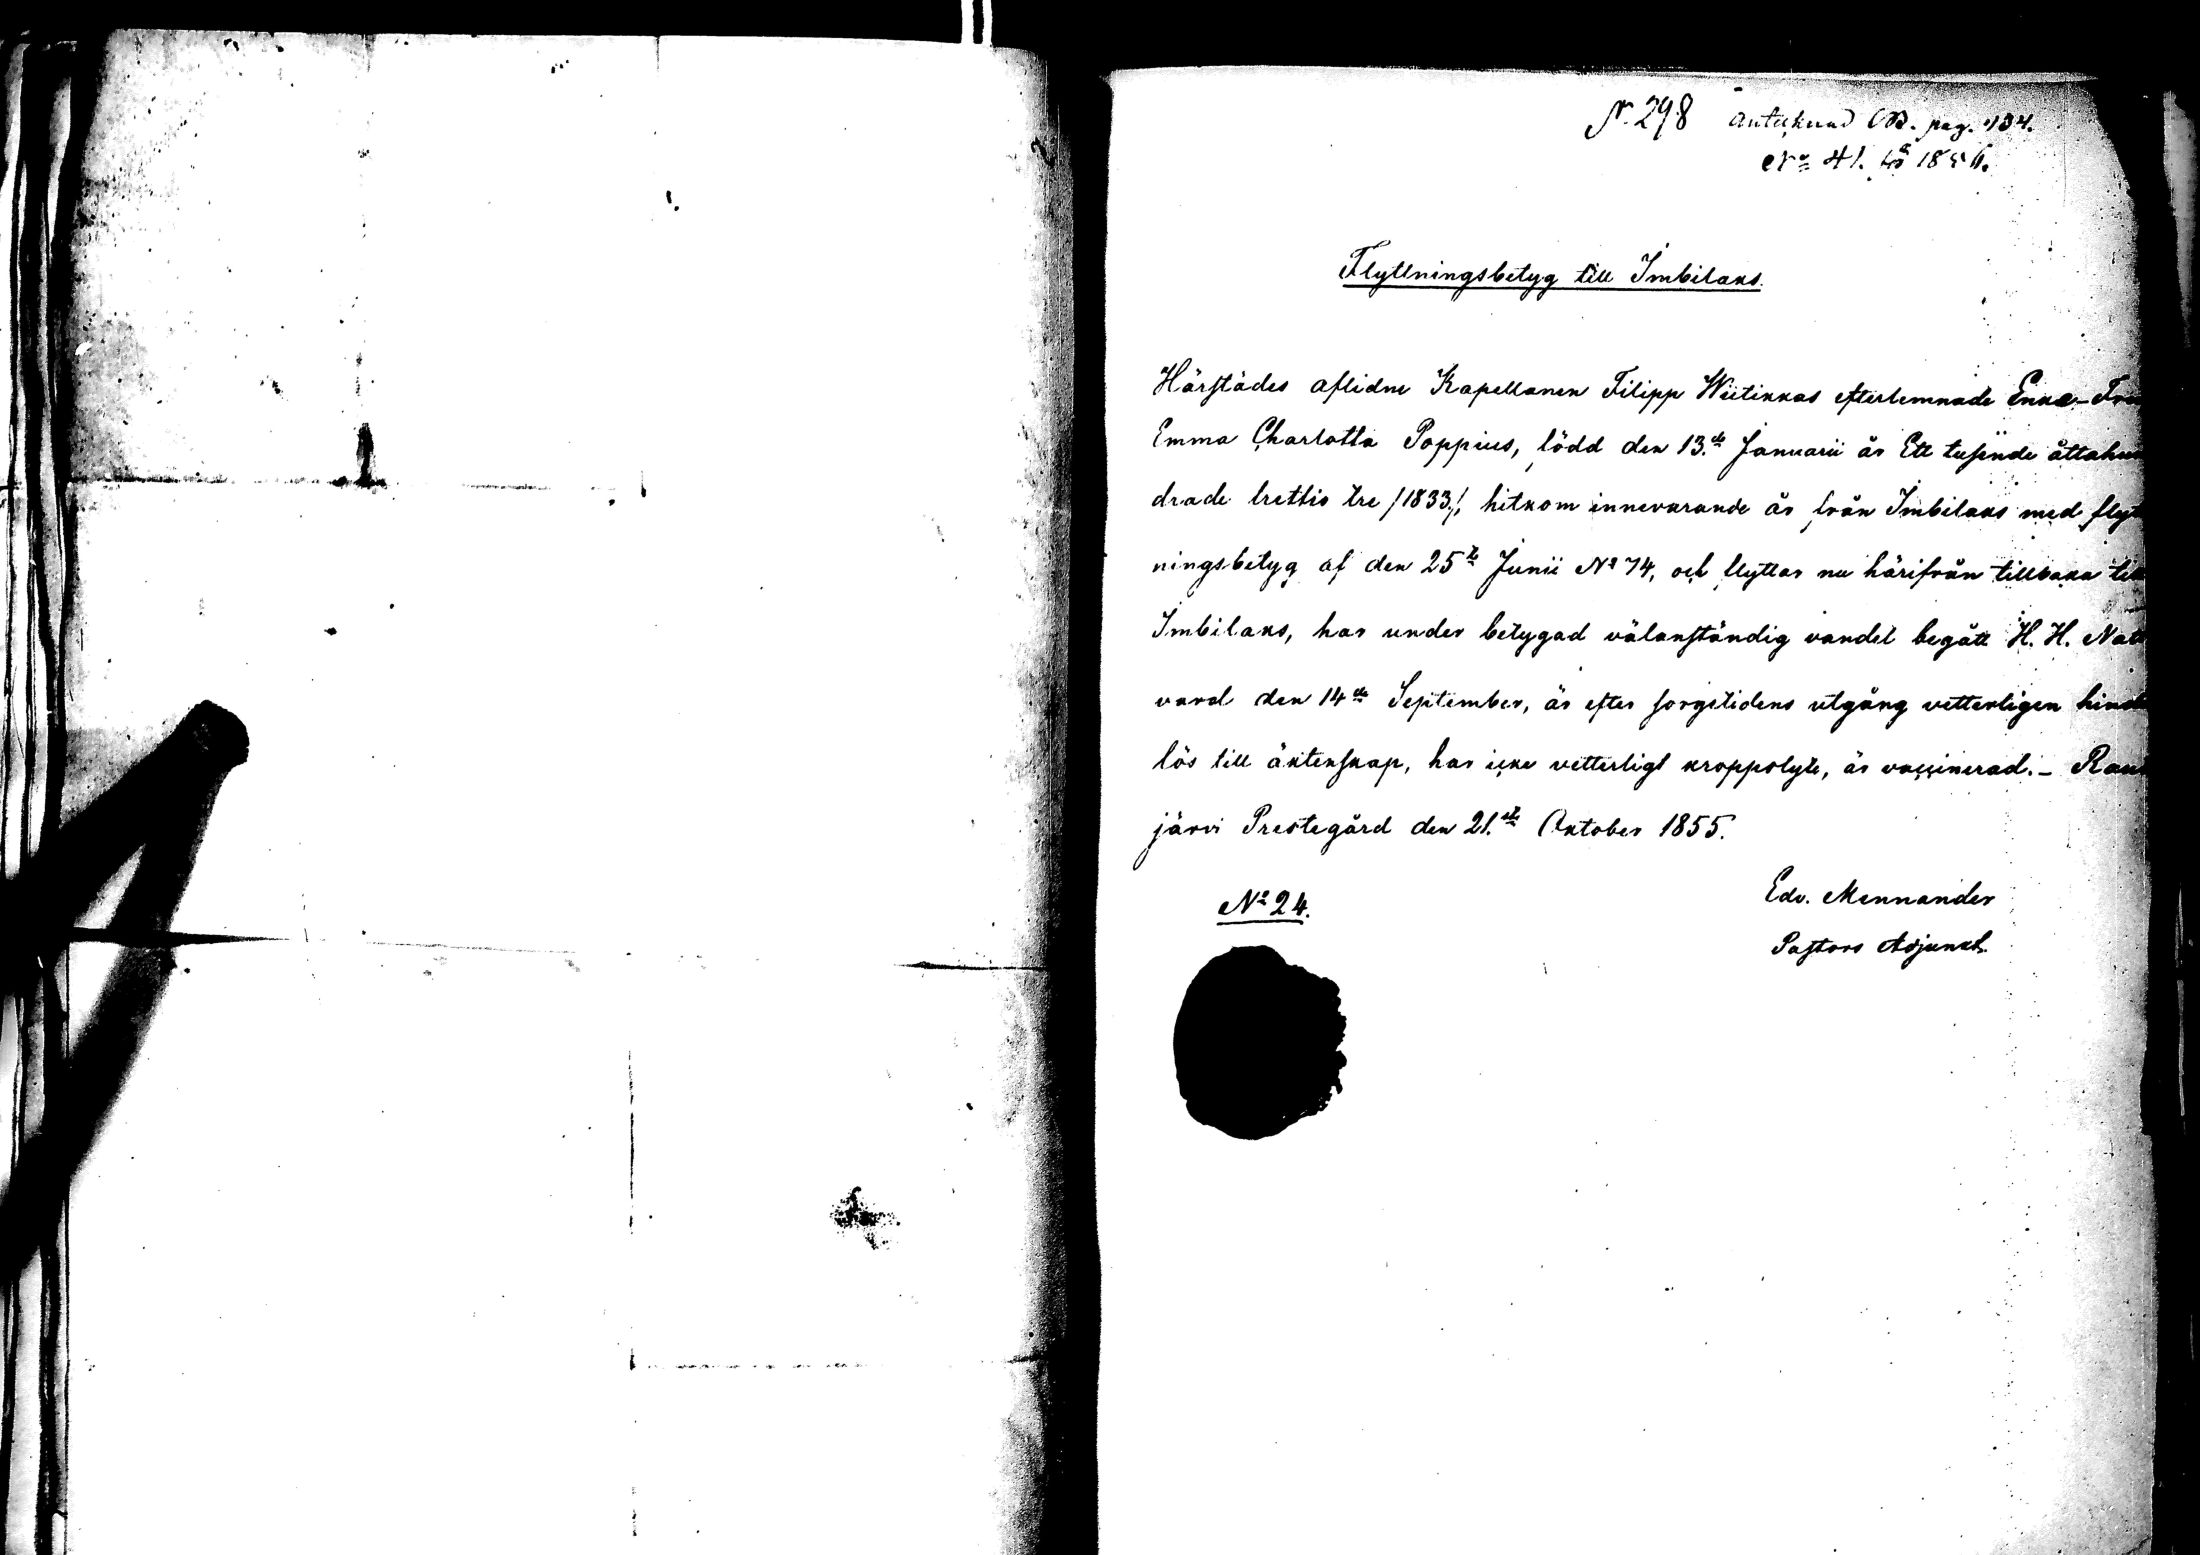 N. 298 antecknad CB. pag. 434.
No 41. 1856.
Flyttningsbetyg till Imbilaks.
Härstädes aflidne Kapellanen Filipp Wiitikkas efterlemnade Enke-Fru
Emma Charlotta Poppius, född den 13.de Januarii år Ett tusende åttahun
drade trettio tre /1833/, hitkom innevarande år från Imbilaks med flyt
ningsbetyg af den 25te Junii No 74, och flyttar nu härifrån tillbaka till
Imbilaks, har under betygad välanständig vandel begått H. H. Natt
vard den 14de September, är efter sorgetidens utgång vetterligen hinder
lös till äktenskap, har icke vetterligt kroppslyte, är vaccinerad. – Raut
järvi Prestegård den 21.de Oktober 1855.
No 24.
Edv. Mennander
Pastors Adjunkt